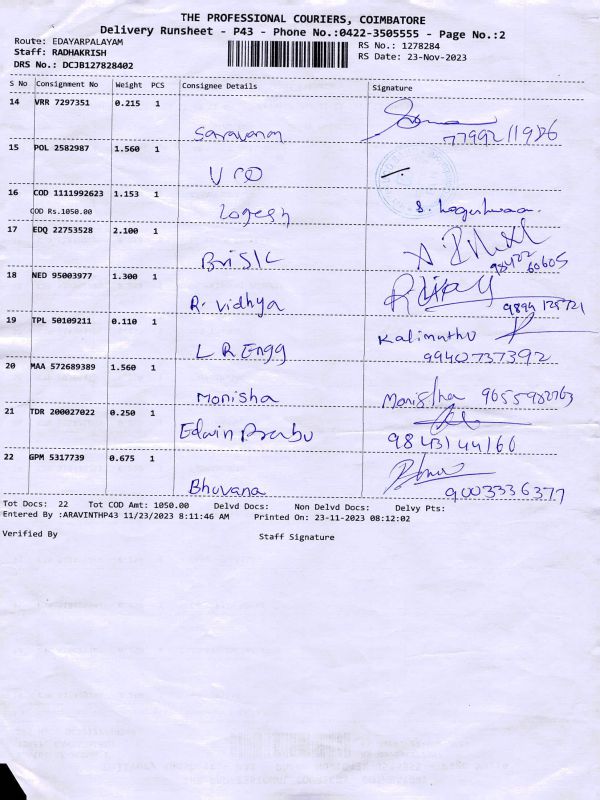 THE PROFESSIONAL COURIERS, COIMBATORE
Delivery Runsheet - P43 - Phone No.:0422-3505555 - Page No.:2
Route: EDAYARPALAYAM
RS No.: 1278284
Staff: RADHAKRISH
RS Date: 23-Nov-2023
DRS No.: DCJB127828402
S No Consignment No Weight PCS Consignee Details Signature
14 VRR 7297351 0.215 1
Saravanan 7799211986
15 POL 2582987 1.560 1
16 COD 1111992623 1.153 1
COD Rs.1050.00
Logesh S. Logeshwaran
17 EDQ 22753528 2.100 1
98422 60605
18 NED 95003977 1.300 1
R. Vidhya 9894 125721
19 TPL 50109211 0.110 1
Kalimuthu
L R Engg 99402737392
20 MAA 572689389 1.560 1
Monisha Monisha 9655982763
21 TDR 200027022 0.250 1
Edwin Prabu 9843144166
22 GPM 5317739 0.675 1
Bhuvana 9003336377
Tot Docs: 22 Tot COD Amt: 1050.00 Delvd Docs: Non Delvd Docs: Delvy Pts:
Entered By :ARAVINTHP43 11/23/2023 8:11:46 AM Printed On: 23-11-2023 08:12:02
Verified By Staff Signature